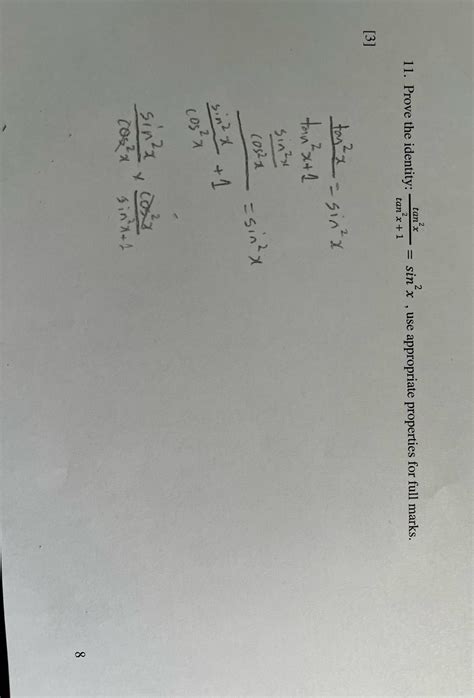 11. Prove the identity: tan²x / (tan²x + 1) = sin²x , use appropriate properties for full marks.
[3]
tan²x / (tan²x+1) = sin²x
(sin²x / cos²x) / (sin²x / cos²x + 1) = sin²x
sin²x / cos²x × cos²x / sin²x+1
8